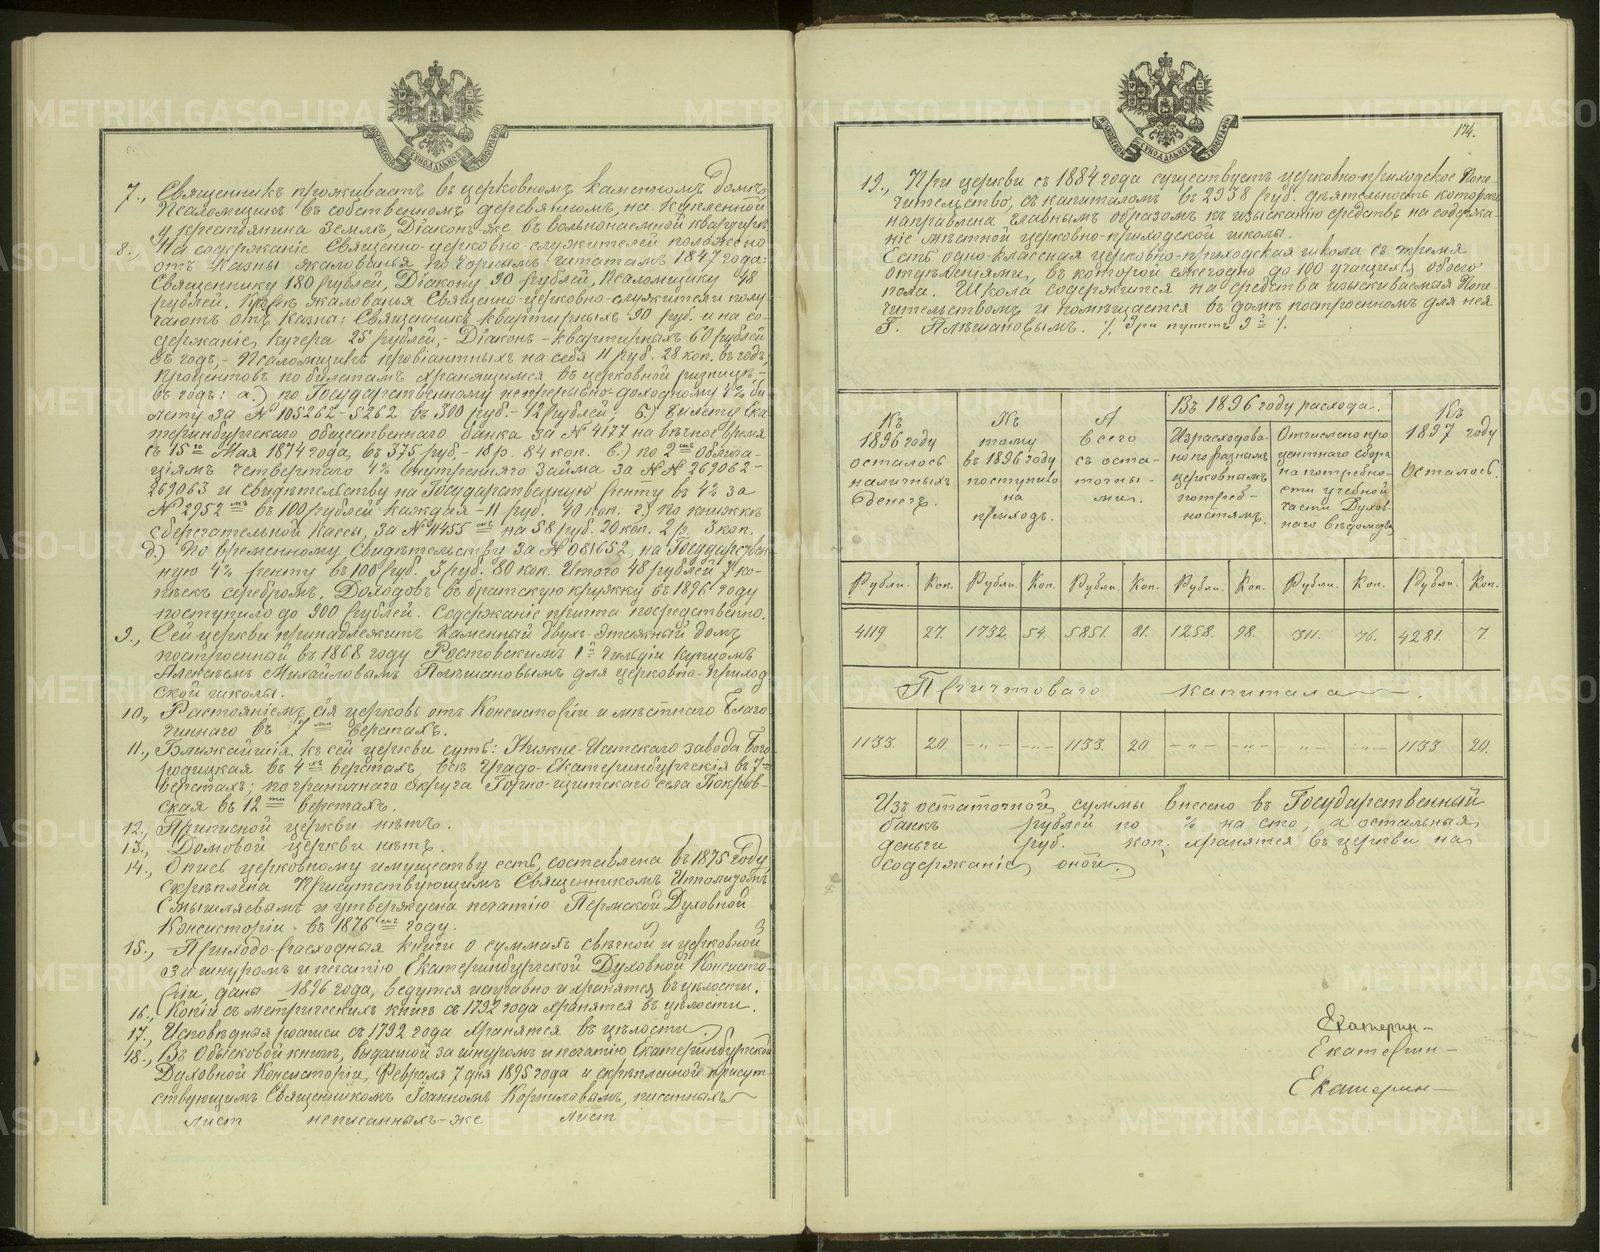 МОСКОВСКОЙ СѴНОДАЛЬНОЙ ТИПОГРАФІИ
7., Священникъ проживаетъ въ церковномъ каменномъ домѣ,
Псаломщикъ въ собственномъ деревянномъ, на купленной
у крестьянина землѣ, Діаконъ-же въ вольнонаемной квартирѣ.
8., На содержаніе Священно-церковно-служителей положено
отъ казны жалованья по горнымъ штатамъ 1847 года:
Священнику 180 рублей, Діакону 90 рублей, Псаломщику 48
рублей. Кромѣ жалованья Священно-церковно-служители полу-
чаютъ отъ казны: Священникъ квартирныхъ 90 руб. и на со-
держаніе кучера 25 рублей,- Діаконъ - квартирныхъ 60 рублей
въ годъ,- Псаломщикъ провіантныхъ на себя 11 руб. 28 коп. въ годъ,
процентовъ по билетамъ хранящимся въ церковной ризницѣ,-
въ годъ: а.) по Государственному непрерывно-доходному 4% би-
лету за № 105262-5262 въ 300 руб.- 12 рублей; б.) билету Ека-
теринбургскаго общественнаго банка за № 4177 на вѣчное время
съ 15го Мая 1874 года, въ 375 руб,- 18 р. 84 коп. в.) по 2мъ облига-
ціямъ четвертаго 4% внутренняго займа за №№ 269062-
269063 и свидѣтельству на Государственную ренту въ 4% за
№ 2952мъ въ 100 рублей каждая - 11 руб. 40 коп. г.) по книжкѣ
сберегательной кассы, за № 4455мъ на 58 руб. 20 коп. 2 р. 3 коп.
д.) по временному свидѣтельству за № 081652, на Государствен-
ную 4% ренту въ 100 руб. 3 руб. 80 коп. Итого 48 рублей 7 ко-
пѣекъ серебромъ. Доходовъ въ братскую кружку въ 1896 году
поступило до 900 рублей. Содержаніе причта посредственно.
9., Сей церкви принадлежитъ каменный двухъ-этажный домъ
построенный въ 1868 году Ростовскимъ 1й гильдіи купцомъ
Алексѣемъ Михайловымъ Плѣшановымъ для церковно-приход
ской школы.
10., Растояніемъ сія церковь отъ Консисторіи и мѣстнаго Благо
чиннаго въ 7ми верстахъ.
11., Ближайшія къ сей церкви суть: Нижне-Исетскаго завода Бого-
родицкая въ 4хъ верстахъ, всѣ Градо-Екатеринбургскія въ 7ми
верстахъ; пограничнаго округа Горно-щитскаго села Покров-
ская въ 12ти верстахъ.
12., Приписной церкви нѣтъ.
13., Домовой церкви нѣтъ.
14., Опись церковному имуществу есть, составлена въ 1875 году
скрѣплена Присутствующимъ Священникомъ Ипполитомъ
Смышляевымъ и утверждена печатію Пермской Духовной
Консисторіи въ 1876мъ году.
15., Приходо-расходныя книги о суммахъ свѣчной и церковной
за шнуромъ и печатію Екатеринбургской Духовной Консисто-
ріи, даны 1896 года, ведутся исправно и хранятся въ цѣлости.
16., Копіи съ метрическихъ книгъ съ 1792 года хранятся въ цѣлости.
17., Исповѣдныя росписи съ 1792 года хранятся въ цѣлости.
18., Въ Обысковой книгѣ, выданной за шнуромъ и печатію Екатеринбургской
Духовной Консисторіи, Февраля 7 дня 1895 года и скрѣпленной присут-
ствующимъ Священникомъ Іоанномъ Корниловымъ, писанныхъ
лист неписанныхъ-же лист
МОСКОВСКОЙ СѴНОДАЛЬНОЙ ТИПОГРАФІИ
174.
19., При церкви съ 1884 года существуетъ церковно-приходское Попе-
чительство, съ капиталомъ въ 2938 руб. дѣятельность котораго
направлена главнымъ образомъ къ изысканію средствъ на содержа-
ніе мѣстной церковно-приходской школы.
Есть одно-классная церковно-приходская школа съ тремя
отдѣленіями, въ которой ежегодно до 100 учащихся обоего
пола. Школа содержится на средства изыскиваемыя Попе-
чительствомъ и помѣщается въ домѣ построенномъ для нея
Г. Плѣшановымъ. ./. При пунктѣ 9 ./.
Къ 1896 году осталось наличныхъ денегъ.
Къ тому въ 1896 году поступило на приходъ.
А всего съ оста- точны- ми.
Въ 1896 году расхода.
Израсходова- но по разнымъ церковнымъ потреб- ностямъ.
Отчислено про центнаго сбора на потребно- сти учебной части Духов- наго вѣдомства
Къ 1897 году осталось.
Рубли. Коп. Рубли Коп. Рубли Коп. Рубли. Коп. Рубли. Коп. Рубли. Коп.
4119 27. 1732. 54. 5851. 81. 1258. 98. 311. 76. 4281. 7.
Причтоваго капитала.
1133. 20 -„- -„- 1133. 20 -„- -„- -„- -„- 1133 20.
Изъ остаточной суммы внесено въ Государственный
банкъ рублей по % на сто, а остальныя
деньги руб. коп. хранятся въ церкви на
содержаніе оной.
Екатерин-
Екатерин-
Екатерин-
METRIKI.GASO-URAL.RU